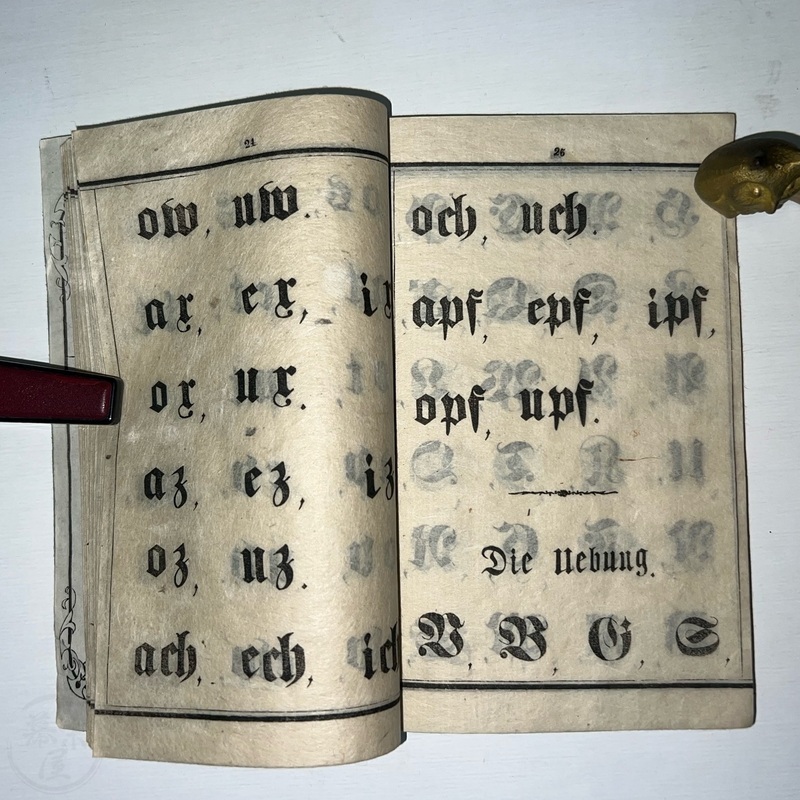 ow, uw.
ax, ex, ix
ox, ux.
az, ez, iz
oz, uz.
ach, ech, ich
26
och, uch.
apf, epf, ipf,
opf, upf.
Die Uebung.
V, B, G, S,